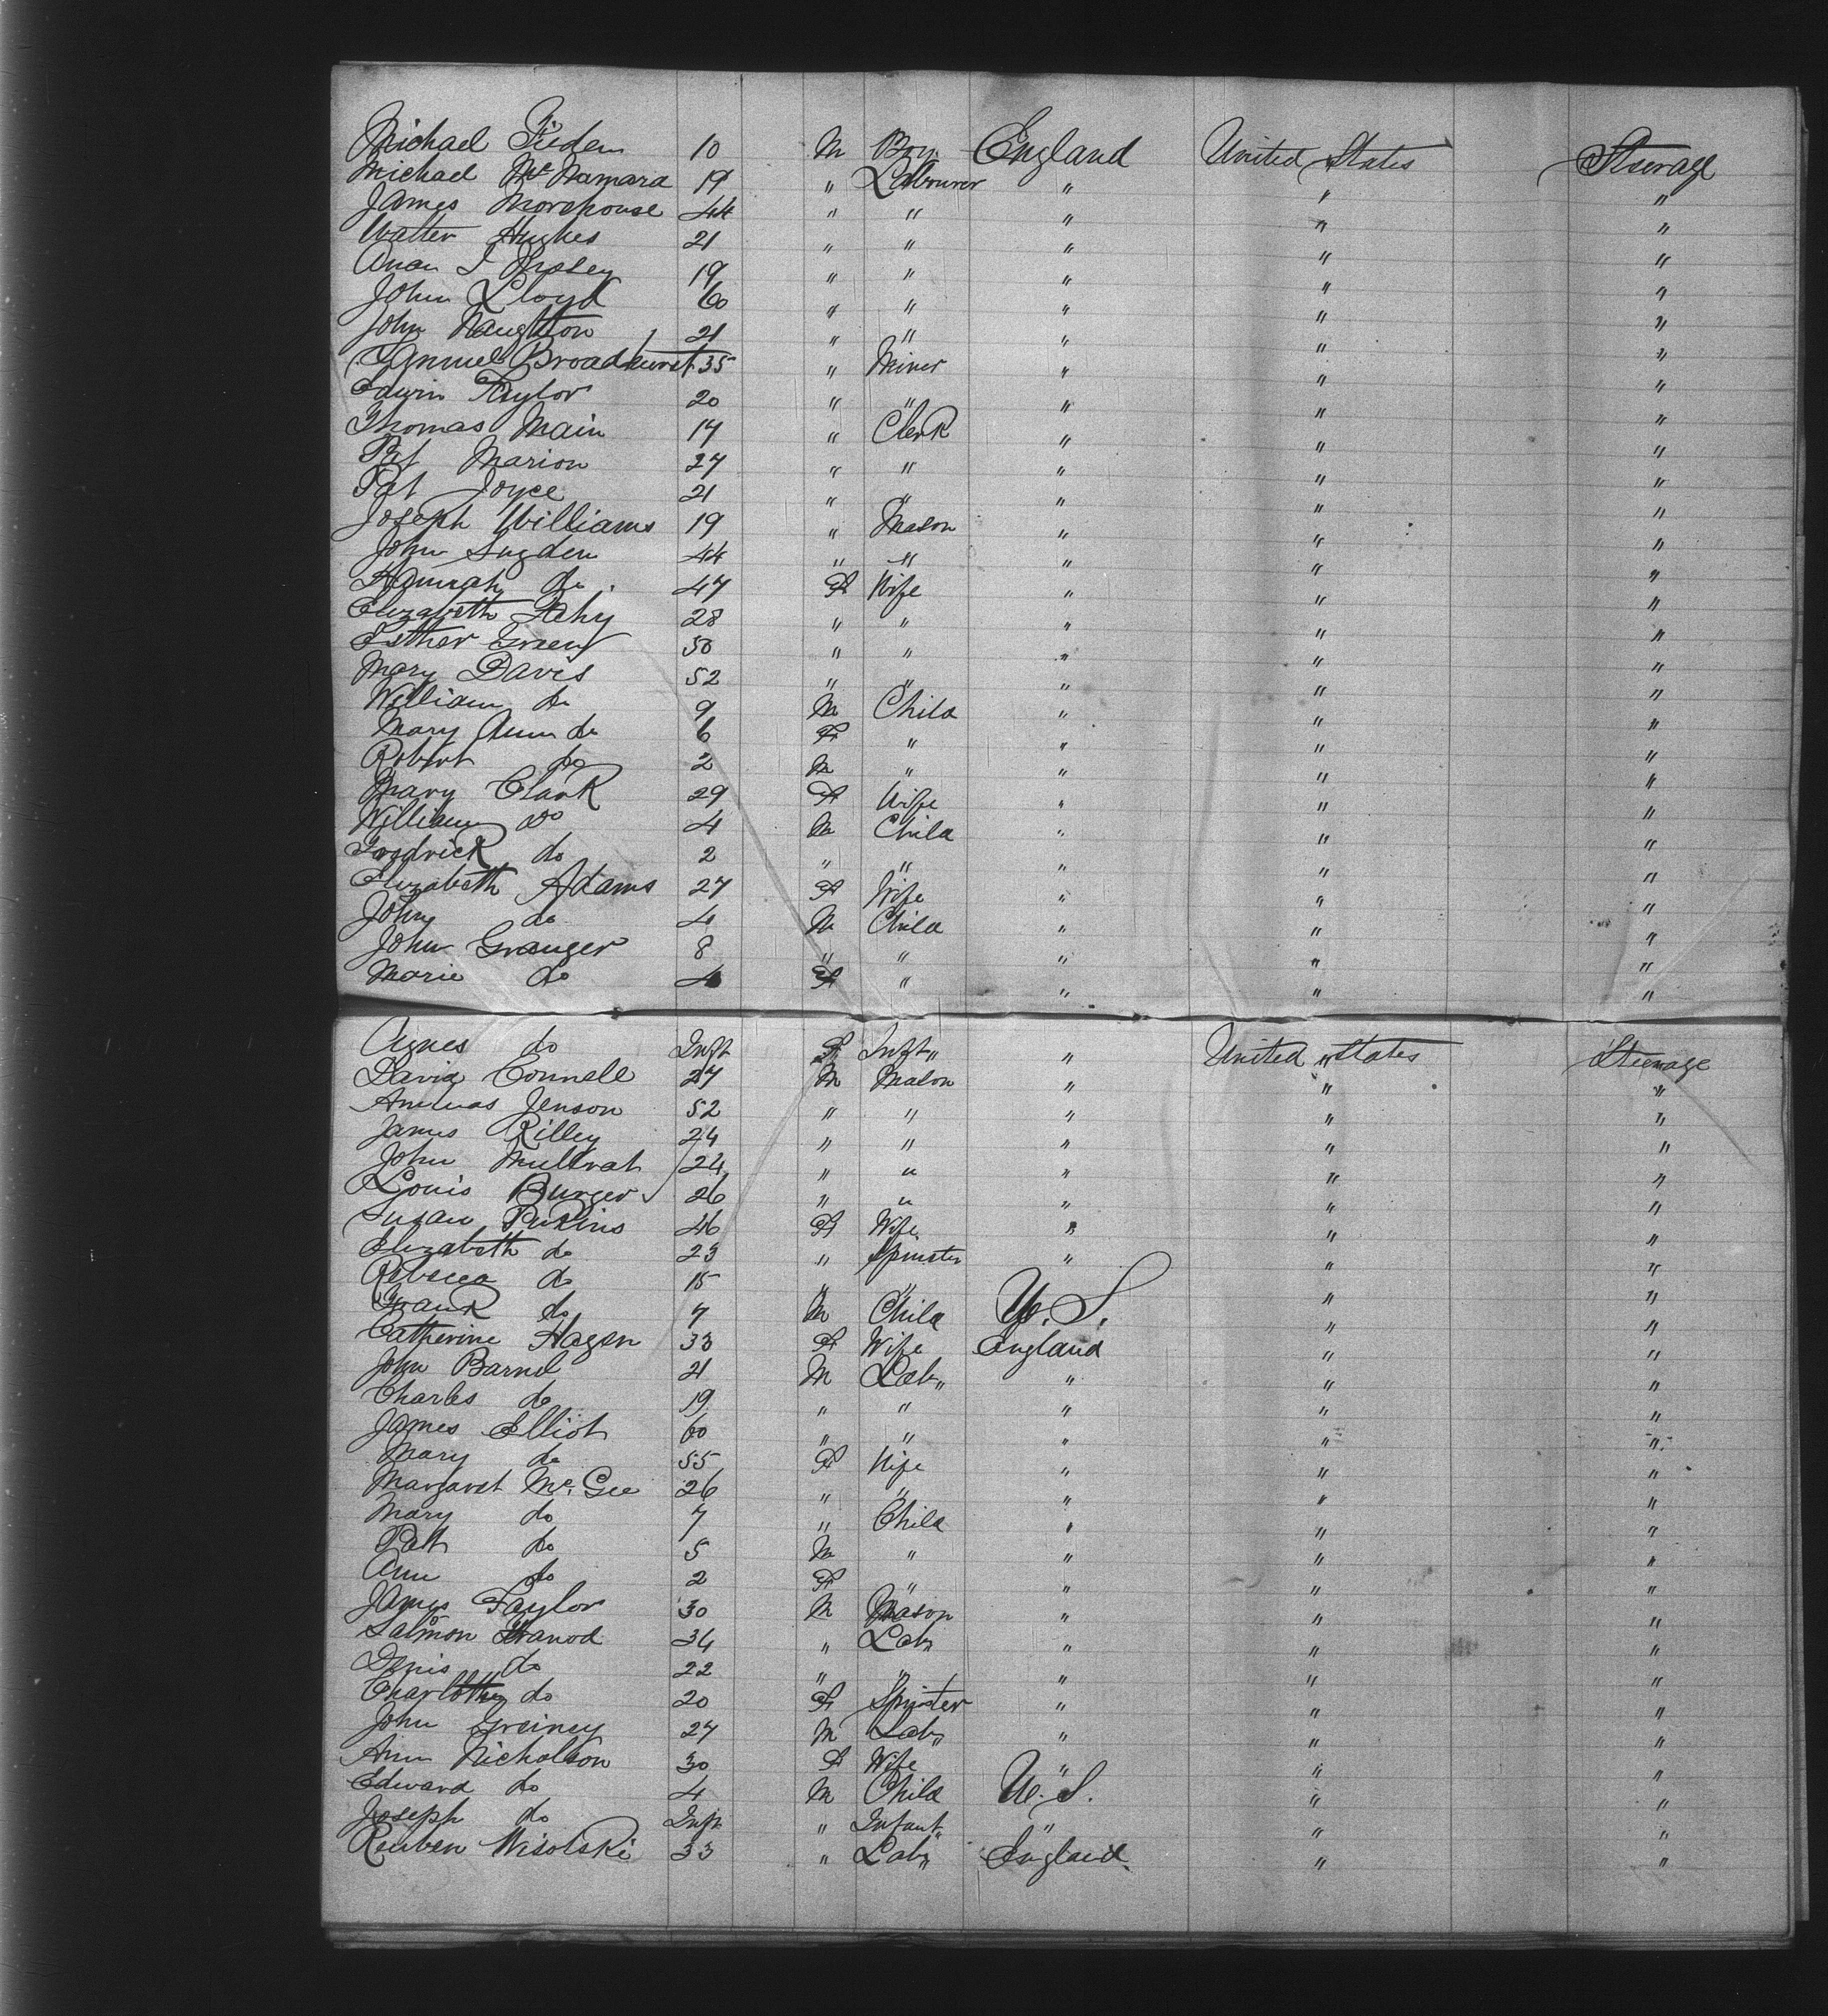 Michael Fieden 10 M Boy England United States Steerage
Michael McNamara 19 " Labourer " " "
James Morehouse 44 " " " " "
Walter Hughes 21 " " " " "
19 " " " " "
John Lloyd 60 " " " " "
John Naughton 21 " " " " "
Samuel Broadhurst 35 " Miner " " "
Edwin Taylor 20 " " " " "
Thomas Main 17 " Clerk " " "
Pat Marion 27 " " " " "
Pat Joyce 21 " " " " "
Joseph Williams 19 " Mason " " "
John Sugden 44 " " " " "
Hannah do 47 F Wife " " "
Elizabeth Fehy 28 " " " " "
Esther Green 50 " " " " "
Mary Davis 52 " " " " "
William do 9 M Child " " "
Mary Ann do 6 F " " " "
Robert do 2 M " " " "
Mary Clark 29 F Wife " " "
William do 4 M Child " " "
Fredrick do 2 " " " " "
Elizabeth Adams 27 F Wife " " "
John do 4 M Child " " "
John Granger 8 " " " " "
Marie do 4 F " " " "
Agnes do Inft F Inft " " United States Steerage
David Connell 27 M Mason " " "
Andreas Jenson 52 " " " " "
James Rilley 24 " " " " "
John Mullrat 24 " " " " "
Louis Burger 26 " " " " "
Susan Perkins 46 F Wife " " "
Elizabeth do 23 " Spinster " " "
Rebecca do 15 " " " "
Frank do 7 M Child U.S. " "
Catherine Hagen 33 F Wife England " "
John Barnel 21 M Lab " " " "
Charles do 19 " " " " "
James Elliot 60 " " " " "
Mary do 55 F Wife " " "
Margaret McGee 26 " " " " "
Mary do 7 " Child " " "
Patt do 5 M " " " "
Ann do 2 F " " " "
James Taylor 30 M Mason " " "
Salmon 34 " Lab " " " "
Denis do 22 " " " " "
Charlotte do 20 F Spinster " " "
John Greiney 27 M Lab " " " "
Ann Nicholson 30 F Wife " " "
Edward do 4 M Child U.S. " "
Joseph do Inft " Infant " " "
Reuben Wisolski 33 " Lab " England " "